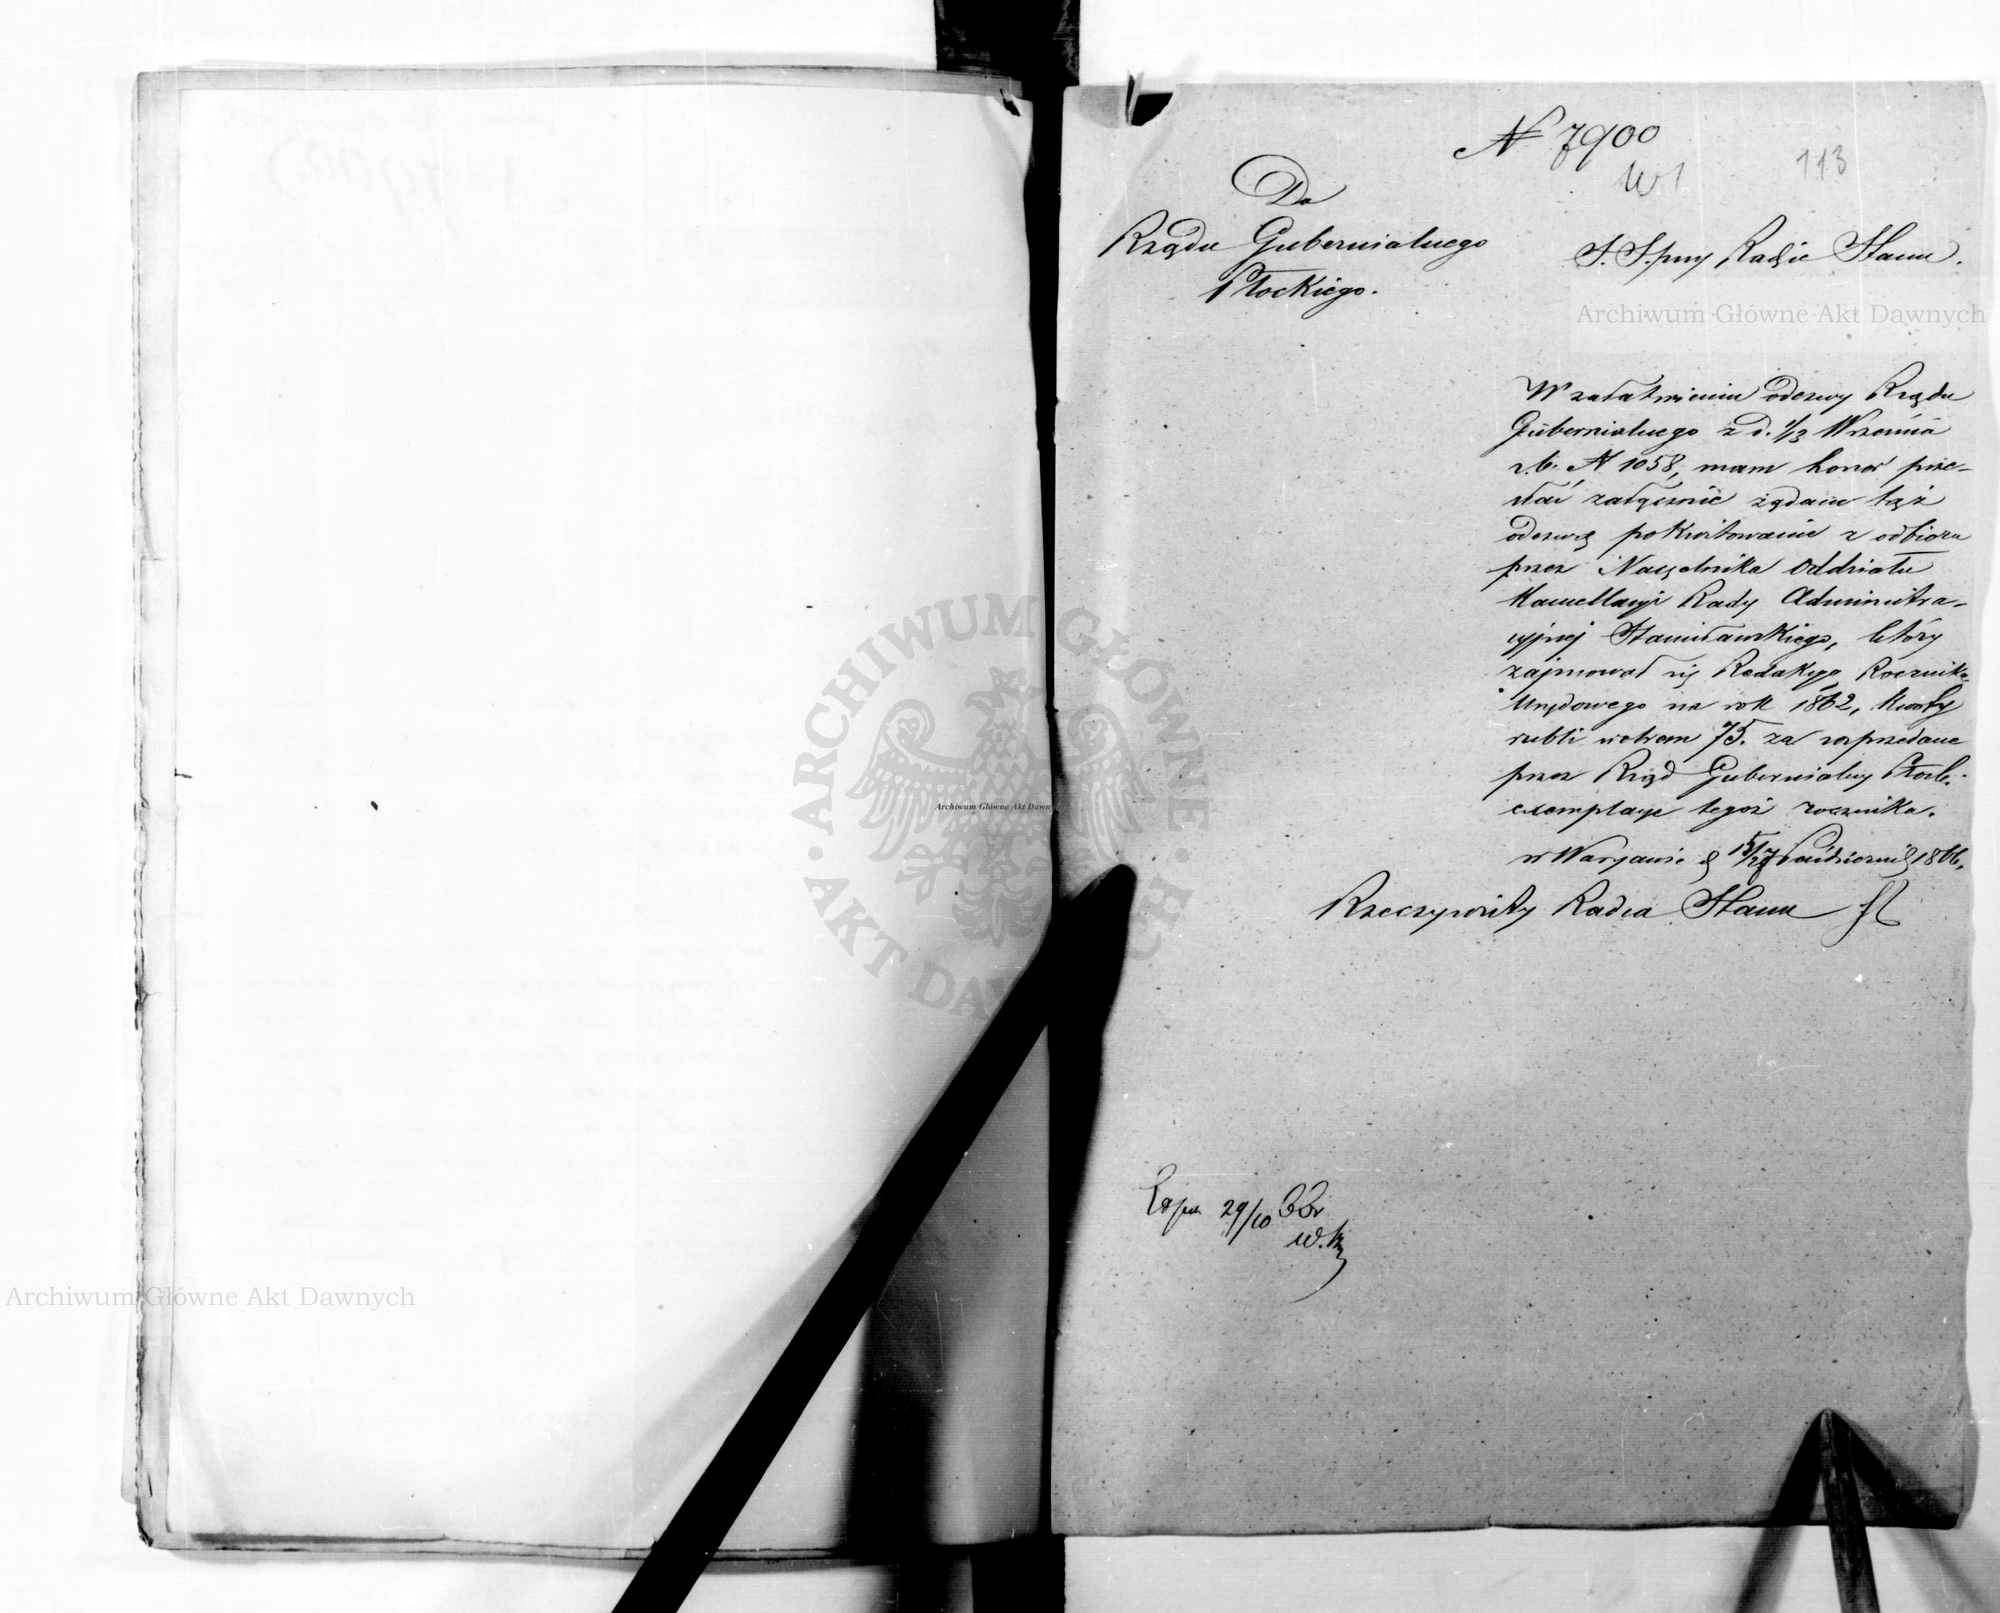 N 7900
113
Do
Rządu Gubernialnego
Płockiego.
S. S. przy Radzie Stanu.
Archiwum Główne Akt Dawnych
W załatwieniu odezwy Rządu
Gubernialnego z d. 1/13 Września
r. b. N 1058, mam honor prze-
słać załącznie żądane tąż
odezwą pokwitowanie z odbioru
przez Naczelnika Oddziału
Kancellaryi Rady Administra-
cyjnej Stanisławskiego, który
zajmował się Redakcyą Rocznika
Urzędowego na rok 1862, kwoty
rubli srebrem 75. za rozprzedane
przez Rząd Gubernialny Płock.
exemplarze tegoż rocznika.
w Warszawie d 15/27 Października 1866.
Rzeczywisty Radca Stanu
ARCHIWUM GŁÓWNE AKT DAWNYCH
Archiwum Główne Akt Dawnych
29/10
Archiwum Główne Akt Dawnych